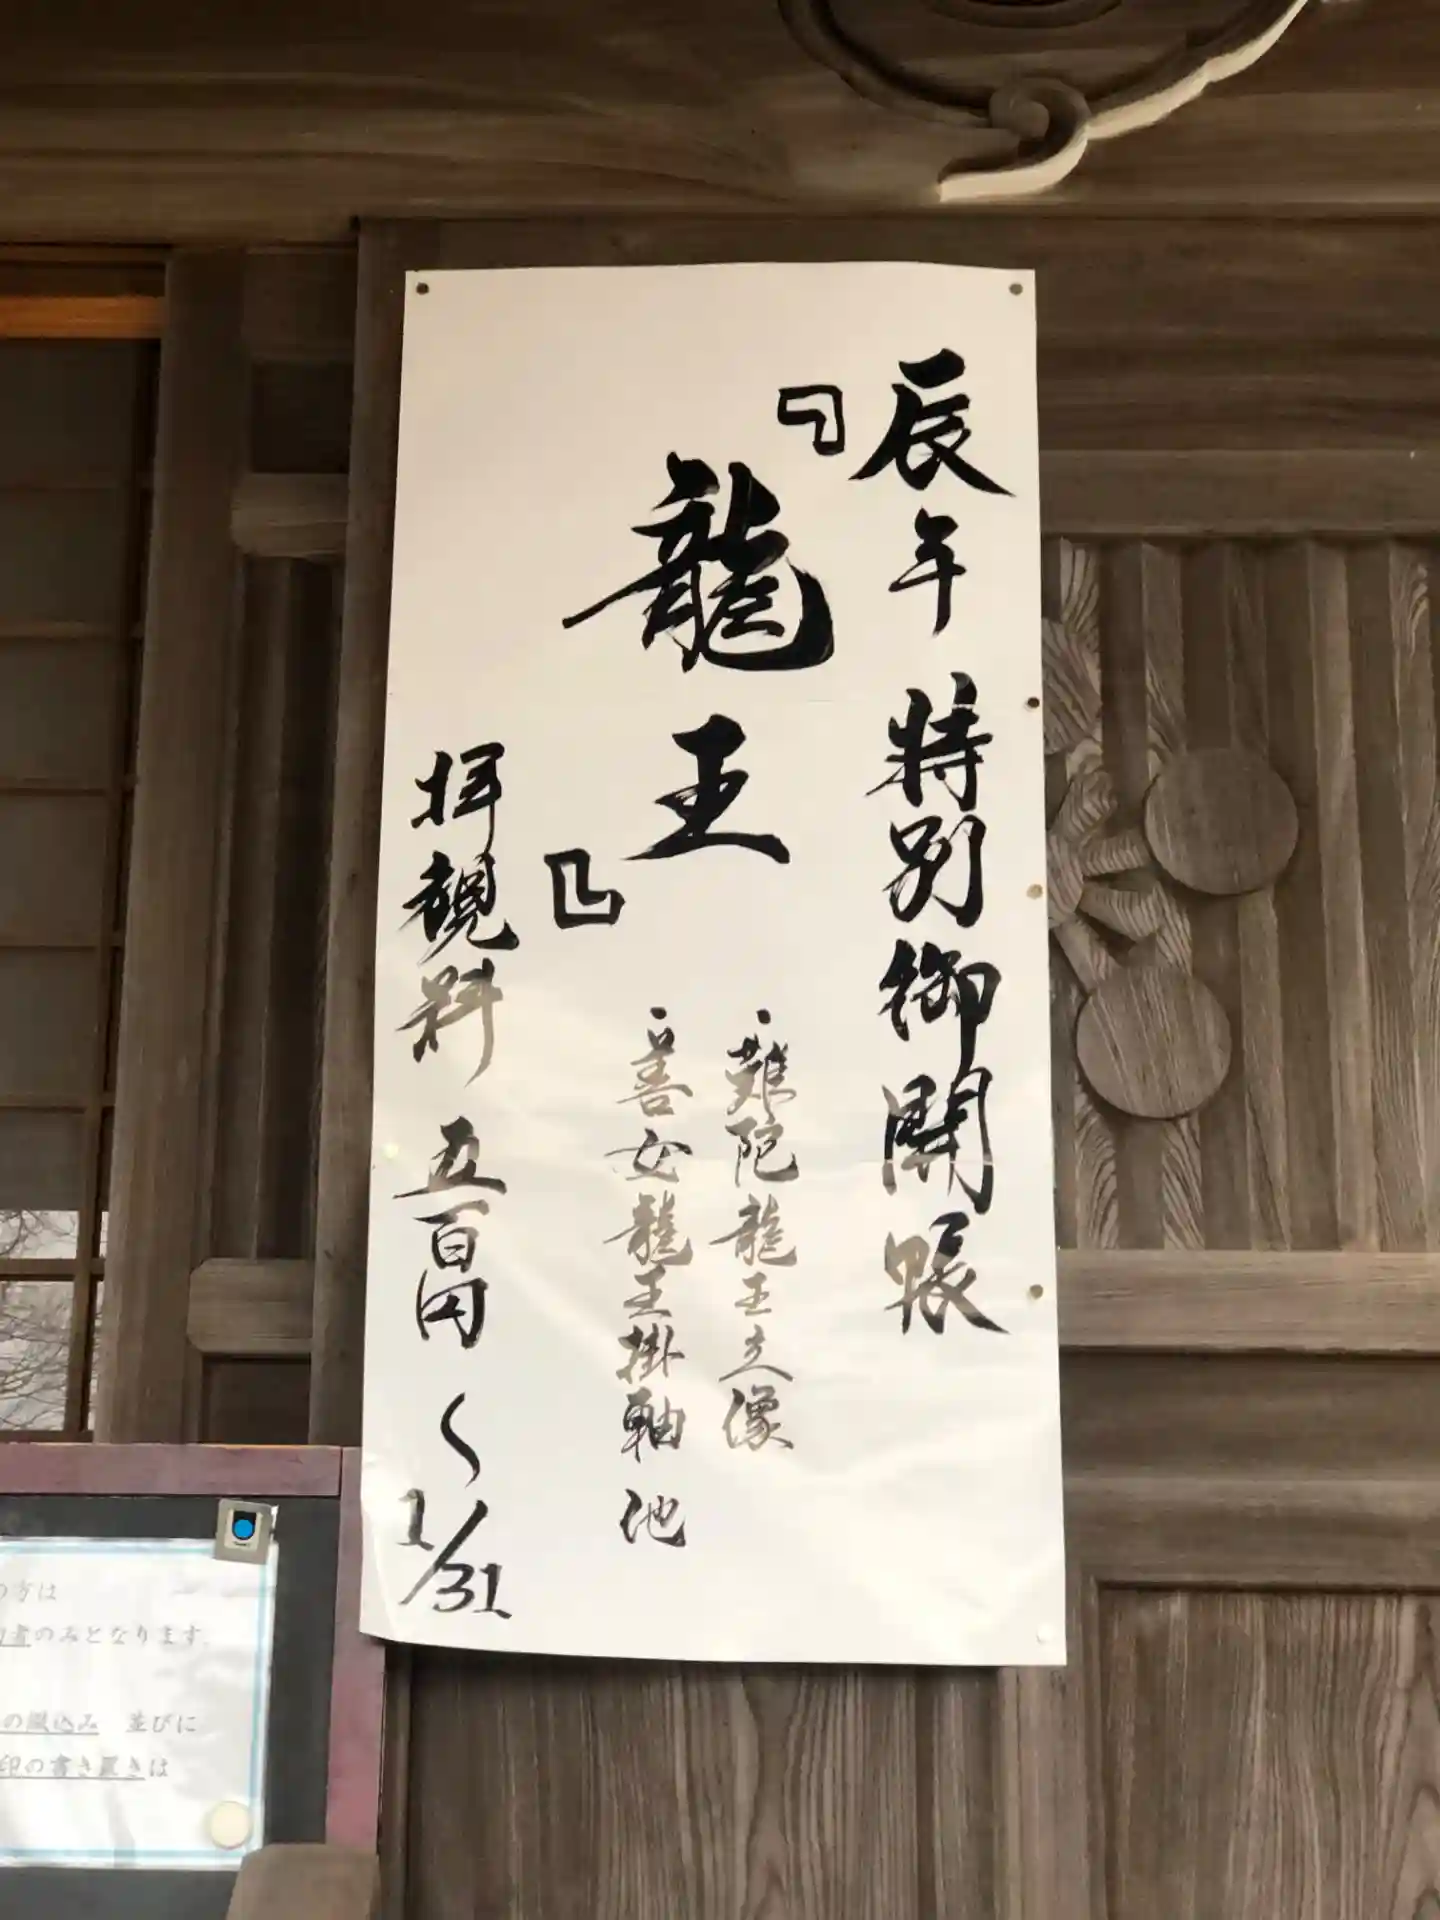 辰年 特別御開帳
『龍王』
・難陀龍王立像
・善女龍王掛軸 他
拝観料 五百円 〜1/31
の方は
のみとなります。
の綴込み 並びに
印の書き置きは